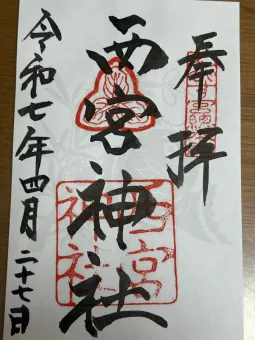 奉拝
西宮神社
令和七年四月二十七日
西宮神社